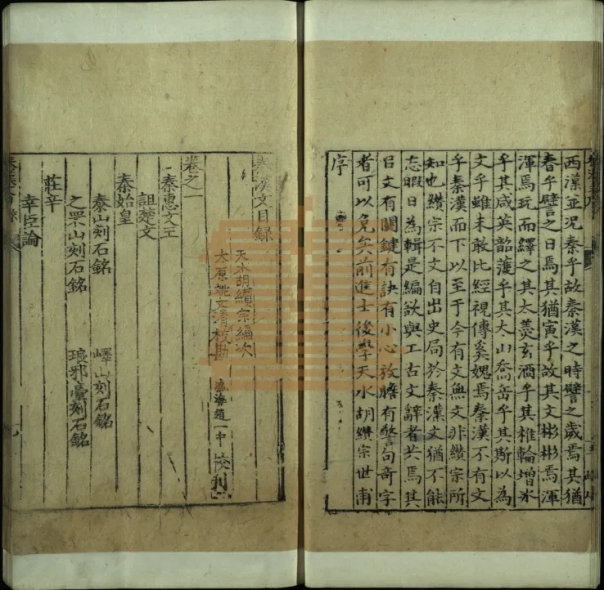 西漢並況秦乎故秦漢之時譬之歲焉其猶
春乎譬之日焉其猶寅乎故其文彬彬焉渾
渾焉玩而繹之其太羹玄酒乎其椎輪增冰
乎其咸英韶濩乎其大山喬岳乎其斯以為
文乎雖未敢比經視傳奚媿焉秦漢不有文
乎秦漢而下以至于今有文無文非纘宗所
知也纘宗不文自出史局於秦漢文猶不能
忘暇日為輯是編欲與工古文辭者共焉其
曰文有關鍵有訣有小心放膽有警句奇字
者可以免矣前進士後學天水胡纘宗世甫
序
秦漢文目錄
天水胡纘宗編次
太原姚文清校勘
秦海道一中 刊
卷之一
秦惠文王
詛楚文
秦始皇
泰山刻石銘 嶧山刻石銘
之罘山刻石銘 琅邪臺刻石銘
莊辛
幸臣論